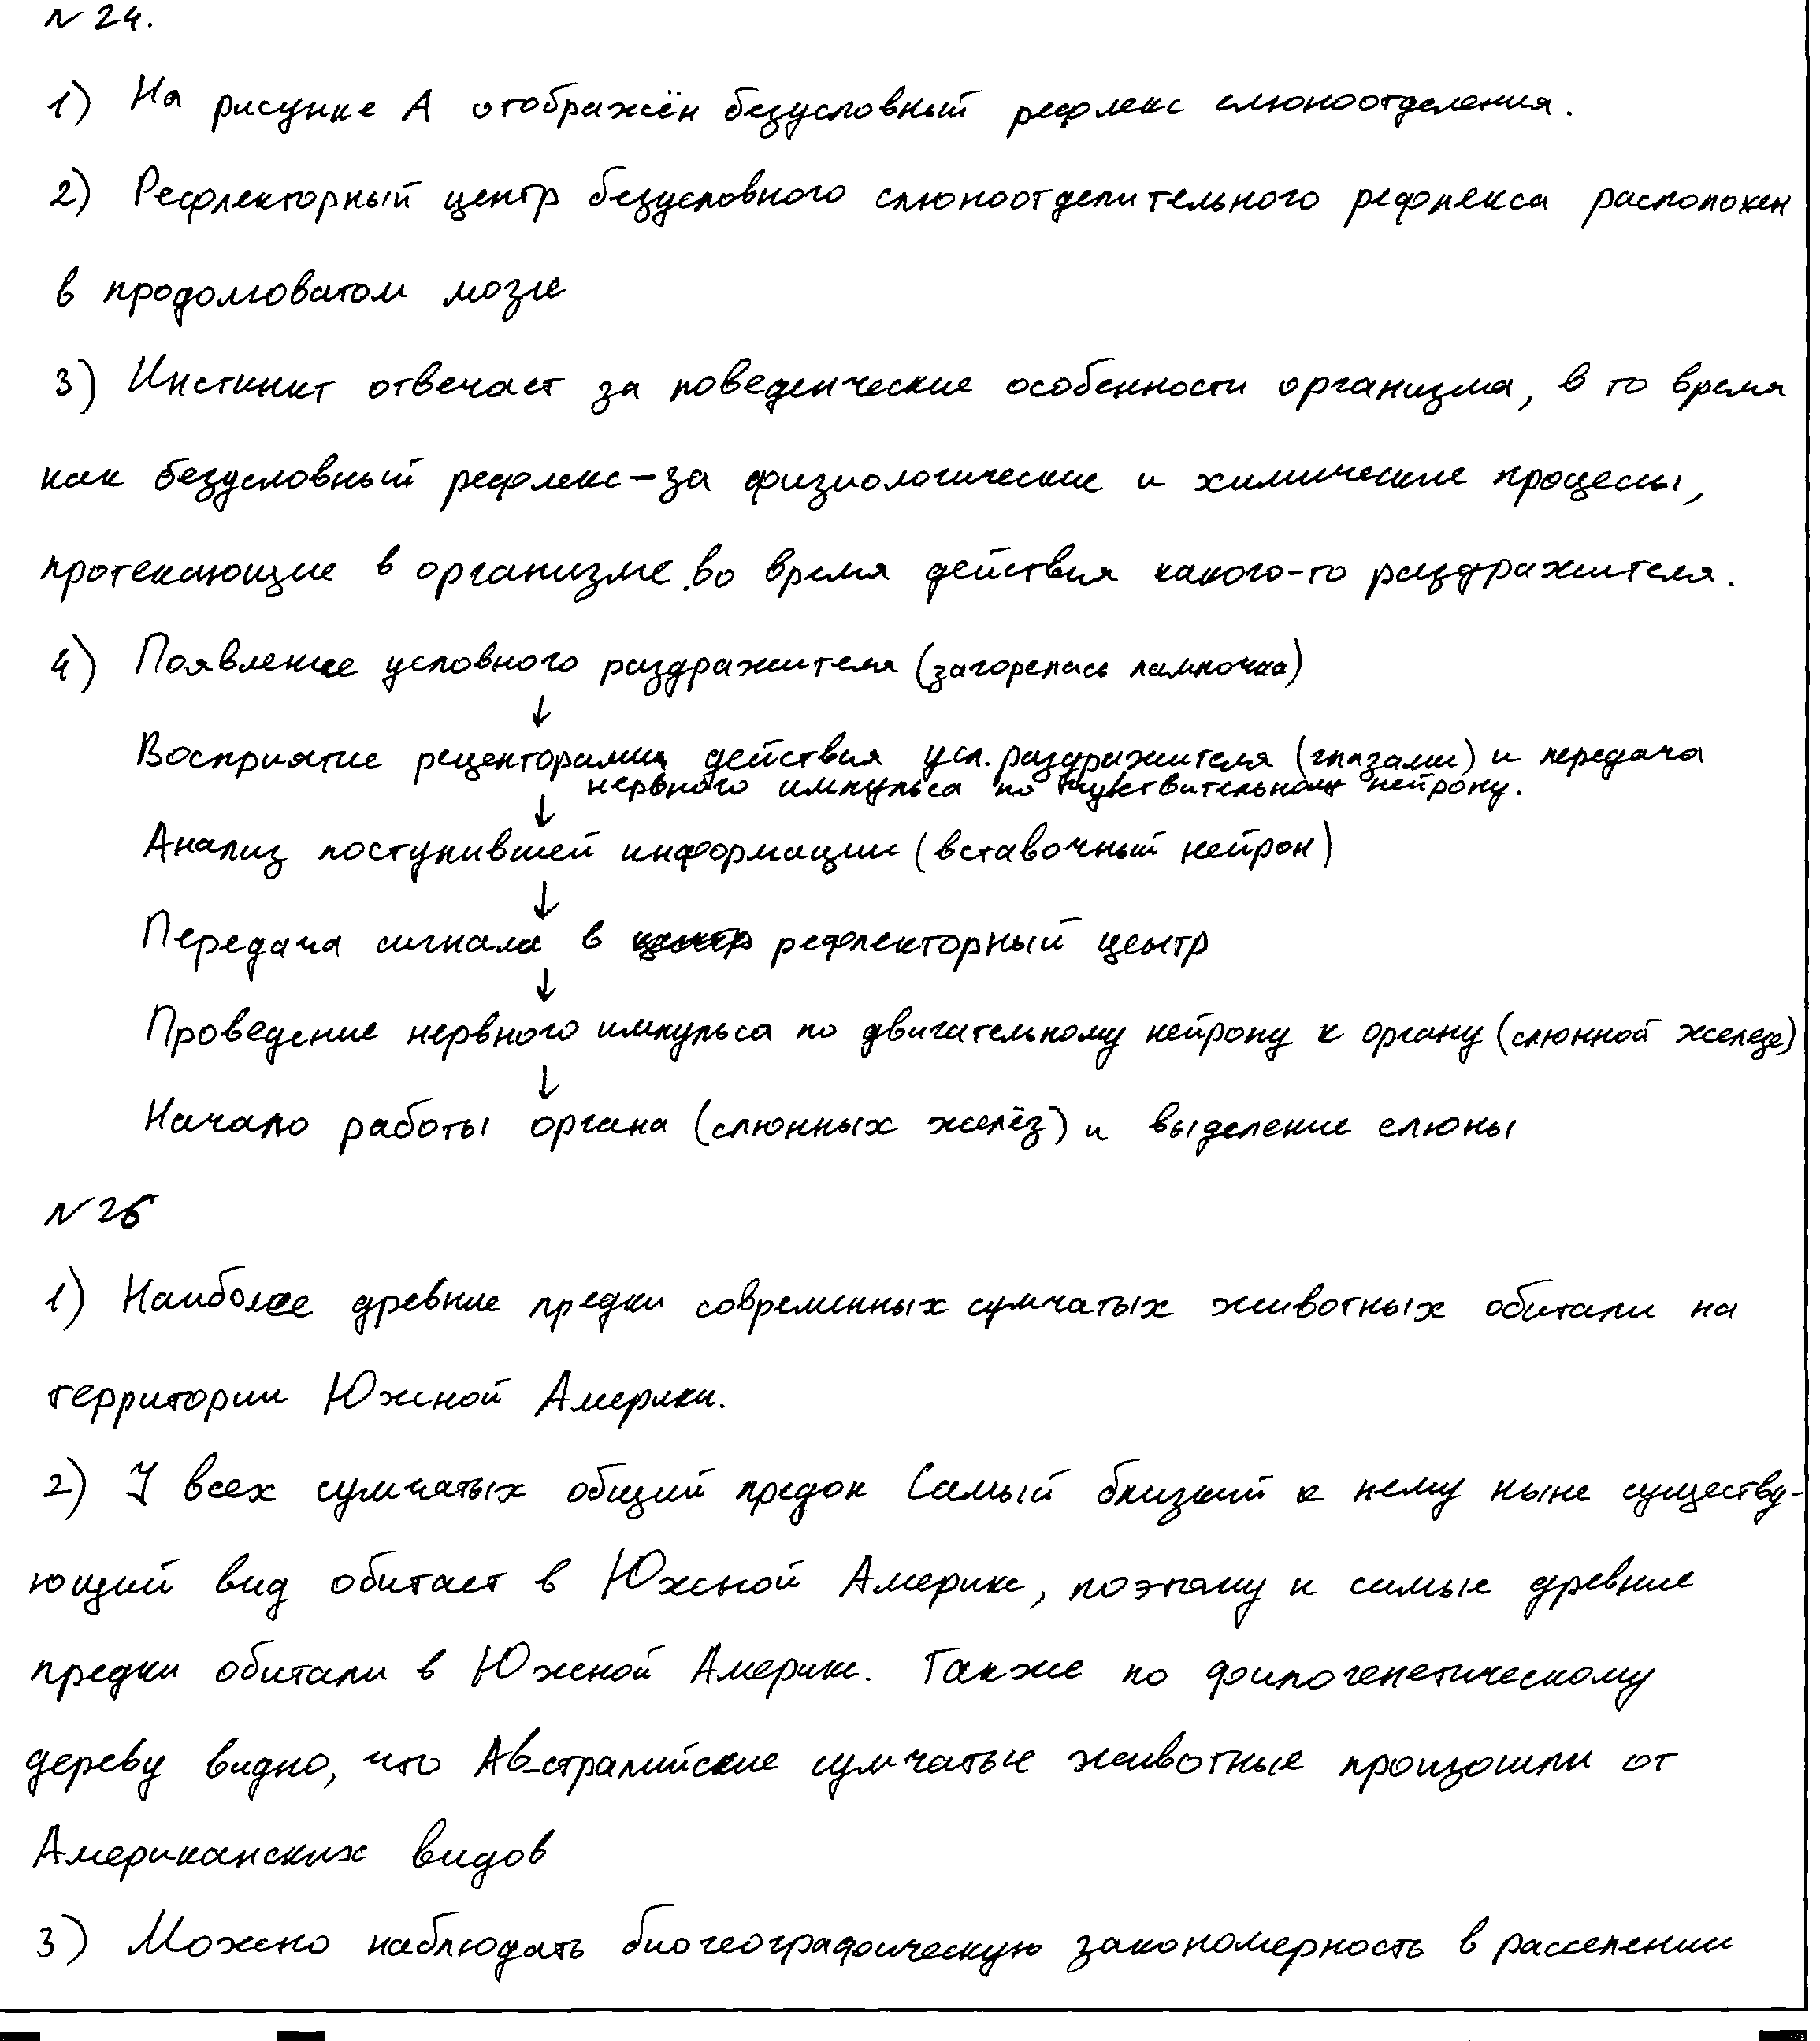 N 24.
1) На рисунке А отображён безусловный рефлекс слюноотделения.
2) Рефлекторный центр безусловного слюноотделительного рефлекса расположен
в продолговатом мозге
3) Инстинкт отвечает за поведенческие особенности организма, в то время
как безусловный рефлекс - за физиологические и химические процессы,
протекающие в организме во время действия какого-то раздражителя.
4) Появление условного раздражителя (загорелась лампочка)
↓
Восприятие рецепторами действия усл. раздражителя (глазами) и передача
нервного импульса по чувствительному нейрону.
↓
Анализ поступившей информации (вставочный нейрон)
↓
Передача сигнала в рефлекторный центр
↓
Проведение нервного импульса по двигательному нейрону к органу (слюнной железе)
↓
Начало работы органа (слюнных желёз) и выделение слюны
N 26
1) Наиболее древние предки современных сумчатых животных обитали на
территории Южной Америки.
2) У всех сумчатых общий предок Самый близкий к нему ныне существу-
ющий вид обитает в Южной Америке, поэтому и самые древние
предки обитали в Южной Америке. Также по филогенетическому
дереву видно, что Австралийские сумчатые животные произошли от
Американских видов
3) Можно наблюдать биогеографическую закономерность в расселении